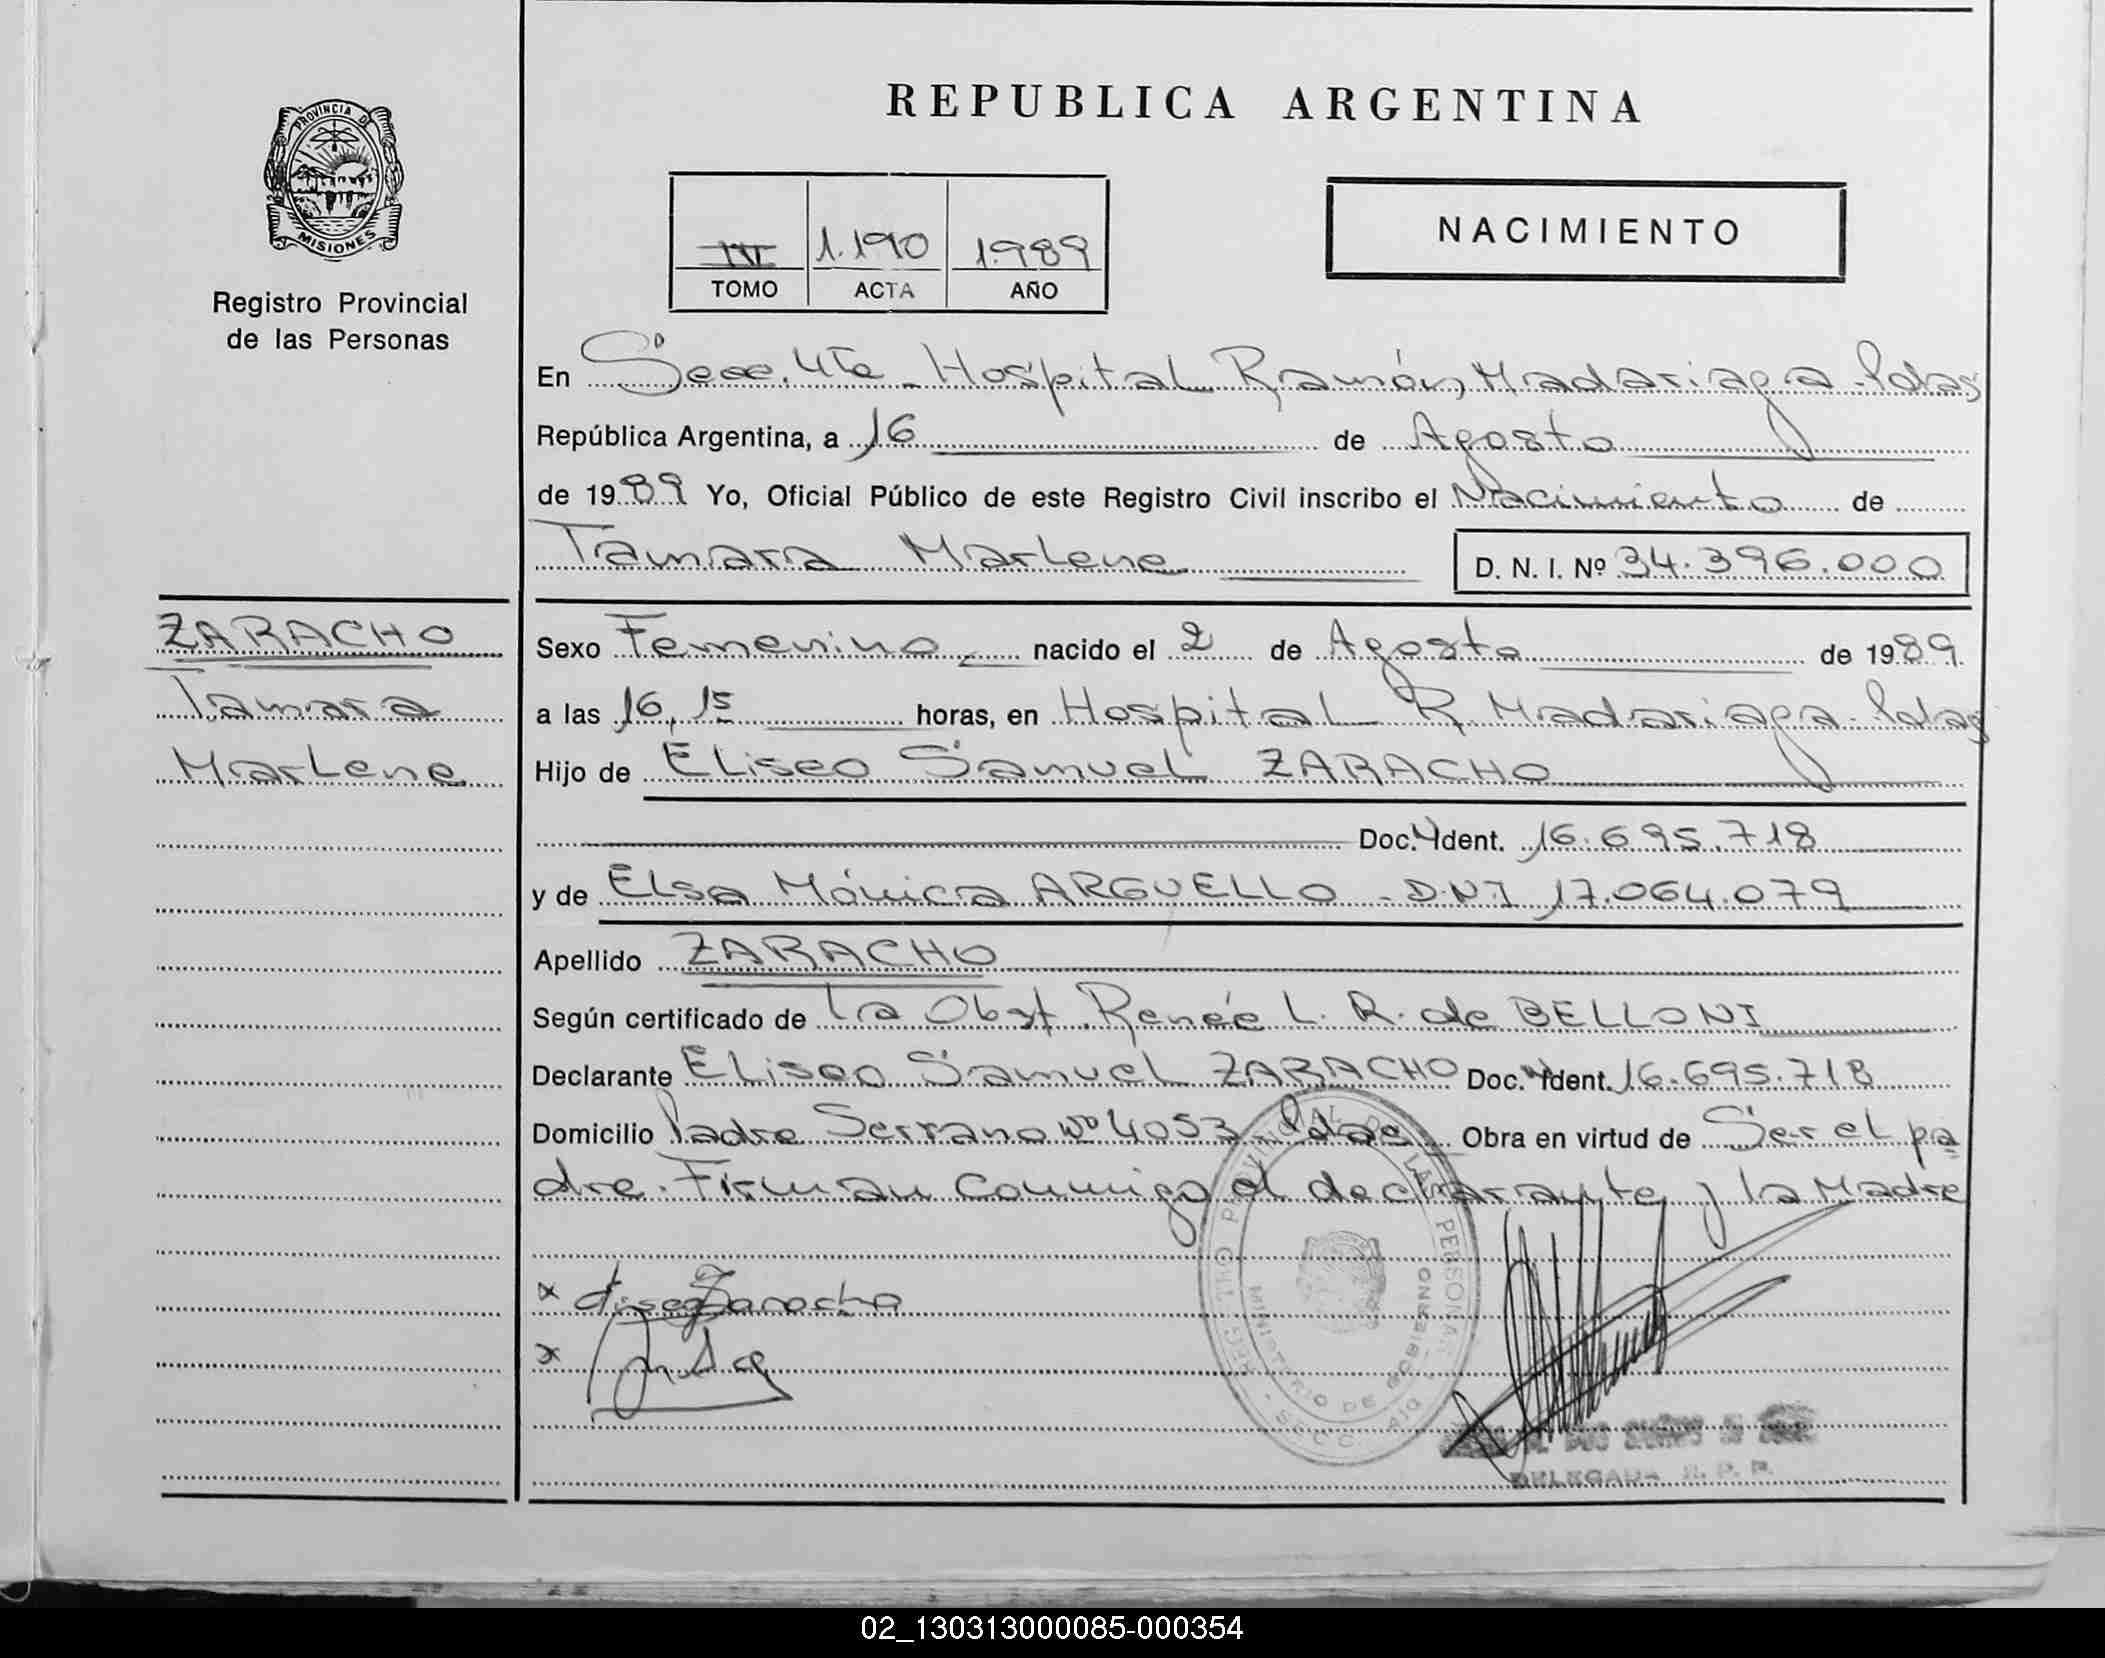 PROVINCIA DE
MISIONES
Registro Provincial
de las Personas
REPUBLICA ARGENTINA
1.190 1.989
TOMO ACTA AÑO
NACIMIENTO
En Secc. 4ta - Hospital Ramón Madariaga - Pdas
República Argentina, a 16 de Agosto
de 1989 Yo, Oficial Público de este Registro Civil inscribo el Nacimiento de
Tamara Marlene D. N. I. Nº 34.396.000
ZARACHO
Tamara
Marlene
Sexo Femenino nacido el 2 de Agosto de 1989.
a las 16,15 horas, en Hospital R. Madariaga - Pdas
Hijo de Eliseo Samuel ZARACHO
Doc. Ident. 16.695.718
y de Elsa Mónica ARGUELLO - D.N.I 17.064.079
Apellido ZARACHO
Según certificado de la Obst. Renée L. R. de BELLONI
Declarante Eliseo Samuel ZARACHO Doc. Ident. 16.695.718
Domicilio Padre Serrano Nº 4053 - Pdas Obra en virtud de Ser el pa
dre. Firman conmigo el declarante y la Madre
x Eliseo Zaracho
x
REGISTRO PROVINCIAL DE LAS PERSONAS
MINISTERIO DE GOBIERNO
SECC.
DELEGADA R. P. P.
02_130313000085-000354